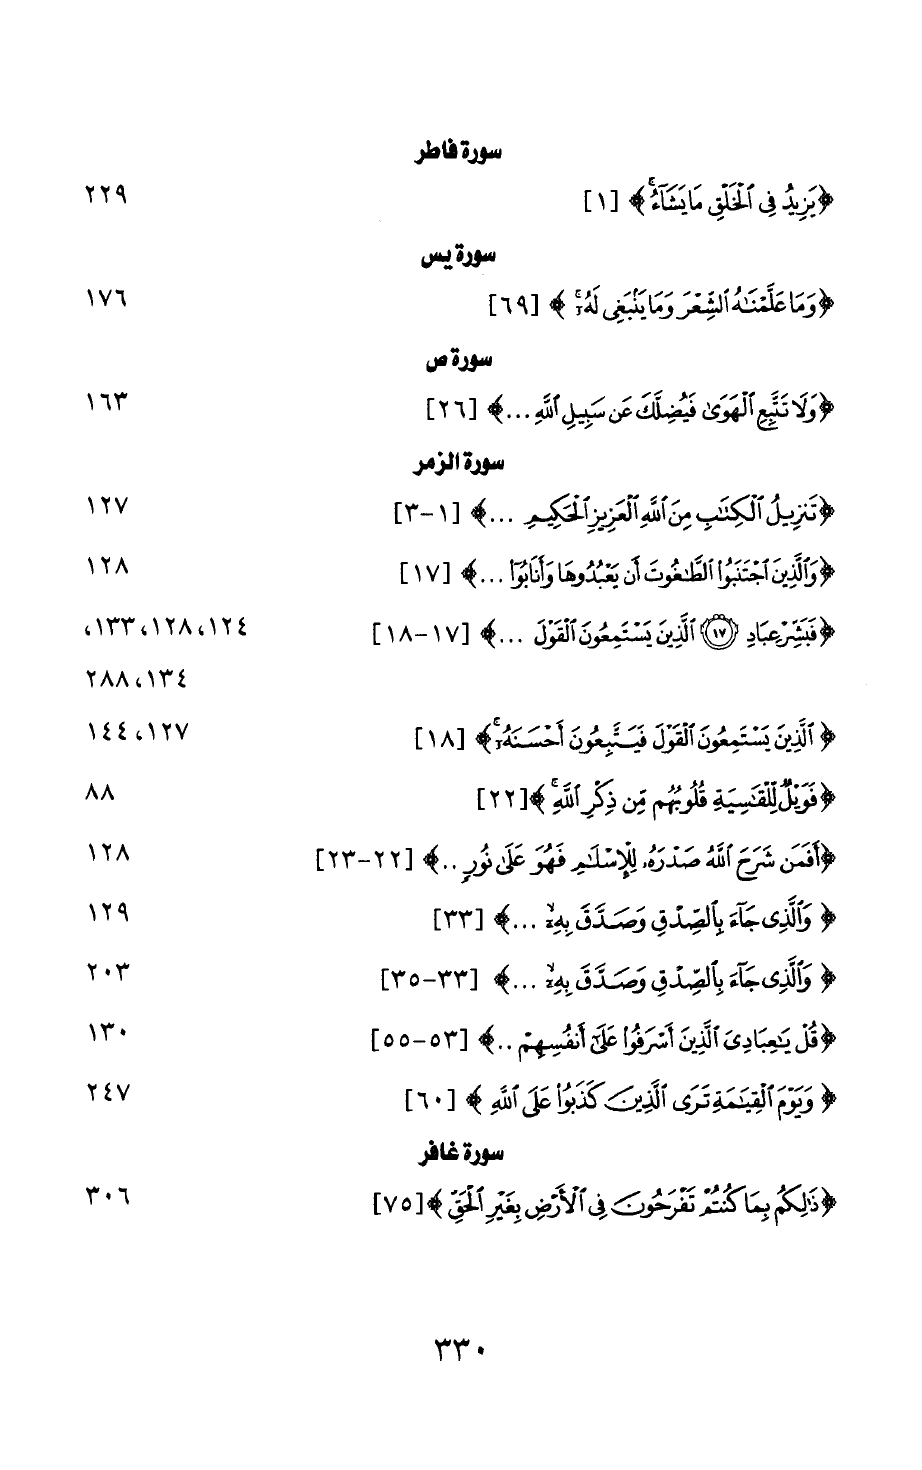 سورة فاطر
﴿يَزِيدُ فِي ٱلْخَلْقِ مَا يَشَآءُۚ﴾ [١] ٢٢٩
سورة يس
﴿وَمَا عَلَّمْنَٰهُ ٱلشِّعْرَ وَمَا يَنۢبَغِي لَهُۥٓۚ﴾ [٦٩] ١٧٦
سورة ص
﴿وَلَا تَتَّبِعِ ٱلْهَوَىٰ فَيُضِلَّكَ عَن سَبِيلِ ٱللَّهِ...﴾ [٢٦] ١٦٣
سورة الزمر
﴿تَنزِيلُ ٱلْكِتَٰبِ مِنَ ٱللَّهِ ٱلْعَزِيزِ ٱلْحَكِيمِ ...﴾ [١-٣] ١٢٧
﴿وَٱلَّذِينَ ٱجْتَنَبُوا۟ ٱلطَّٰغُوتَ أَن يَعْبُدُوهَا وَأَنَابُوٓا۟ ...﴾ [١٧] ١٢٨
﴿فَبَشِّرْ عِبَادِ ١٧ ٱلَّذِينَ يَسْتَمِعُونَ ٱلْقَوْلَ ...﴾ [١٧-١٨] ١٢٤، ١٢٨، ١٣٣،
١٣٤، ٢٨٨
﴿ٱلَّذِينَ يَسْتَمِعُونَ ٱلْقَوْلَ فَيَتَّبِعُونَ أَحْسَنَهُۥٓۚ﴾ [١٨] ١٢٧، ١٤٤
﴿فَوَيْلٌ لِّلْقَٰسِيَةِ قُلُوبُهُم مِّن ذِكْرِ ٱللَّهِۚ﴾ [٢٢] ٨٨
﴿أَفَمَن شَرَحَ ٱللَّهُ صَدْرَهُۥ لِلْإِسْلَٰمِ فَهُوَ عَلَىٰ نُورٍ ..﴾ [٢٢-٢٣] ١٢٨
﴿وَٱلَّذِي جَآءَ بِٱلصِّدْقِ وَصَدَّقَ بِهِۦٓۙ ...﴾ [٣٣] ١٢٩
﴿وَٱلَّذِي جَآءَ بِٱلصِّدْقِ وَصَدَّقَ بِهِۦٓۙ ...﴾ [٣٣-٣٥] ٢٠٣
﴿قُلْ يَٰعِبَادِيَ ٱلَّذِينَ أَسْرَفُوا۟ عَلَىٰٓ أَنفُسِهِمْ ..﴾ [٥٣-٥٥] ١٣٠
﴿وَيَوْمَ ٱلْقِيَٰمَةِ تَرَى ٱلَّذِينَ كَذَبُوا۟ عَلَى ٱللَّهِ﴾ [٦٠] ٢٤٧
سورة غافر
﴿ذَٰلِكُم بِمَا كُنتُمْ تَفْرَحُونَ فِي ٱلْأَرْضِ بِغَيْرِ ٱلْحَقِّ﴾ [٧٥] ٣٠٦
٣٣٠